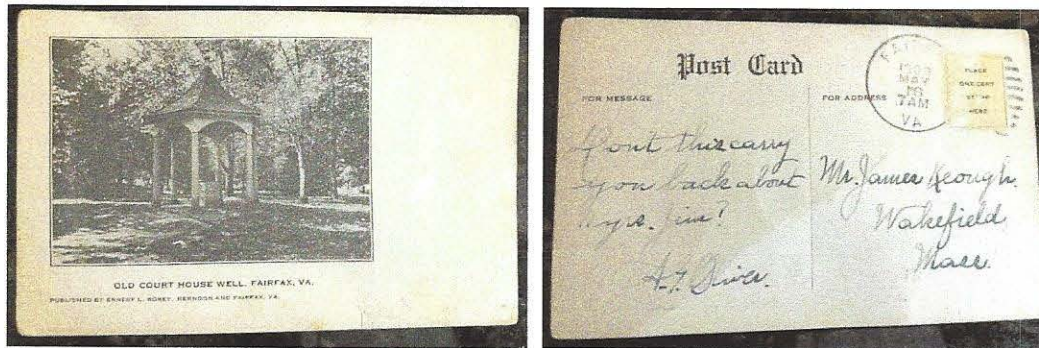 OLD COURT HOUSE WELL, FAIRFAX, VA.
PUBLISHED BY ERNEST L. ROBEY, HERNDON AND FAIRFAX, VA.
Post Card
FOR MESSAGE
FOR ADDRESS
MAY
7AM
VA
PLACE
ONE CENT
STAMP
HERE
Dont this carry
you back about
yrs. Jim?
Mr. James Keough.
Wakefield
Mass.